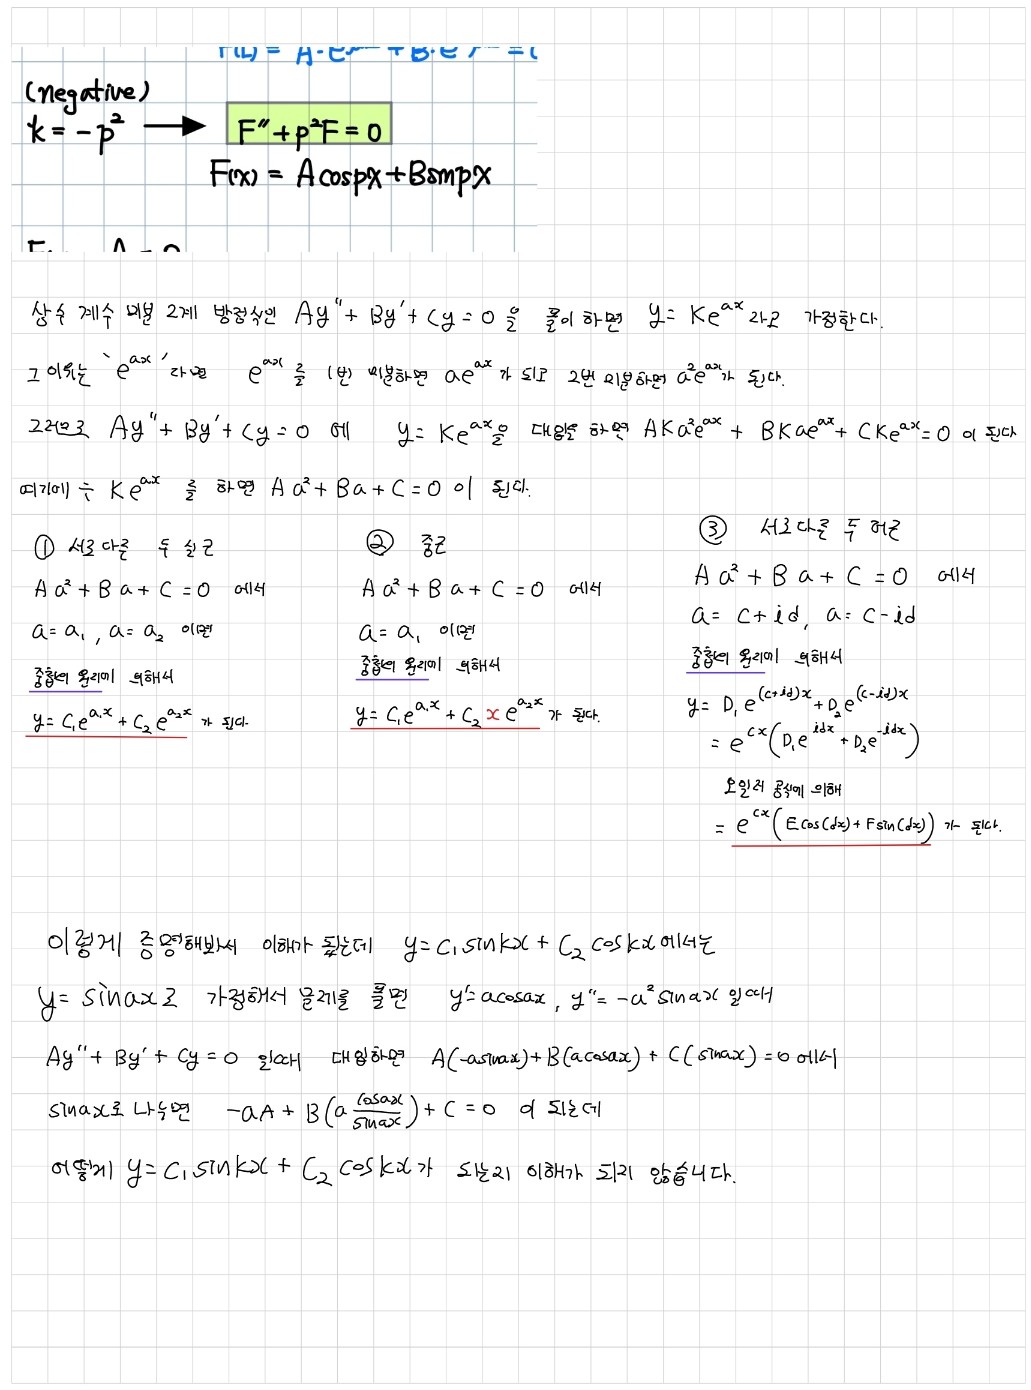 (negative)
k = -p² → F″ + p²F = 0
F(x) = A cospx + Bsinpx
상수 계수 미분 2계 방정식인 Ay″ + By′ + Cy = 0 을 풀이 하면 y = Ke^{ax} 라고 가정한다.
그 이유는 'e^{ax}' 라면 e^{ax} 를 1번 미분하면 ae^{ax} 가 되고 2번 미분하면 a²e^{ax}가 된다.
그러므로 Ay″ + By′ + Cy = 0 에 y = Ke^{ax}을 대입을 하면 AKa²e^{ax} + BKae^{ax} + CKe^{ax} = 0 이 된다
여기에 ÷ Ke^{ax} 를 하면 Aa² + Ba + C = 0 이 된다.
① 서로 다른 두 실근
Aa² + Ba + C = 0 에서
a = a₁, a = a₂ 이면
중첩의 원리에 의해서
y = C₁e^{a₁x} + C₂e^{a₂x} 가 된다.
② 중근
Aa² + Ba + C = 0 에서
a = a₁ 이면
중첩의 원리에 의해서
y = C₁e^{a₁x} + C₂ x e^{a₂x} 가 된다.
③ 서로 다른 두 허근
Aa² + Ba + C = 0 에서
a = c + id, a = c - id
중첩의 원리에 의해서
y = D₁e^{(c+id)x} + D₂e^{(c-id)x}
= e^{cx}(D₁e^{idx} + D₂e^{-idx})
오일러 공식에 의해
= e^{cx}(E cos(dx) + F sin(dx)) 가 된다.
이렇게 증명해봐서 이해가 됬는데 y = C₁ sinkx + C₂ coskx에서는
y = sinax로 가정해서 문제를 풀면 y′ = acosax, y″ = -a² sinax 일때
Ay″ + By′ + Cy = 0 일때 대입하면 A(-asinax) + B(acosax) + C(sinax) = 0 에서
sinax로 나누면 -aA + B(a cosax/sinax) + C = 0 이 되는데
어떻게 y = C₁ sinkx + C₂ coskx가 되는지 이해가 되지 않습니다.